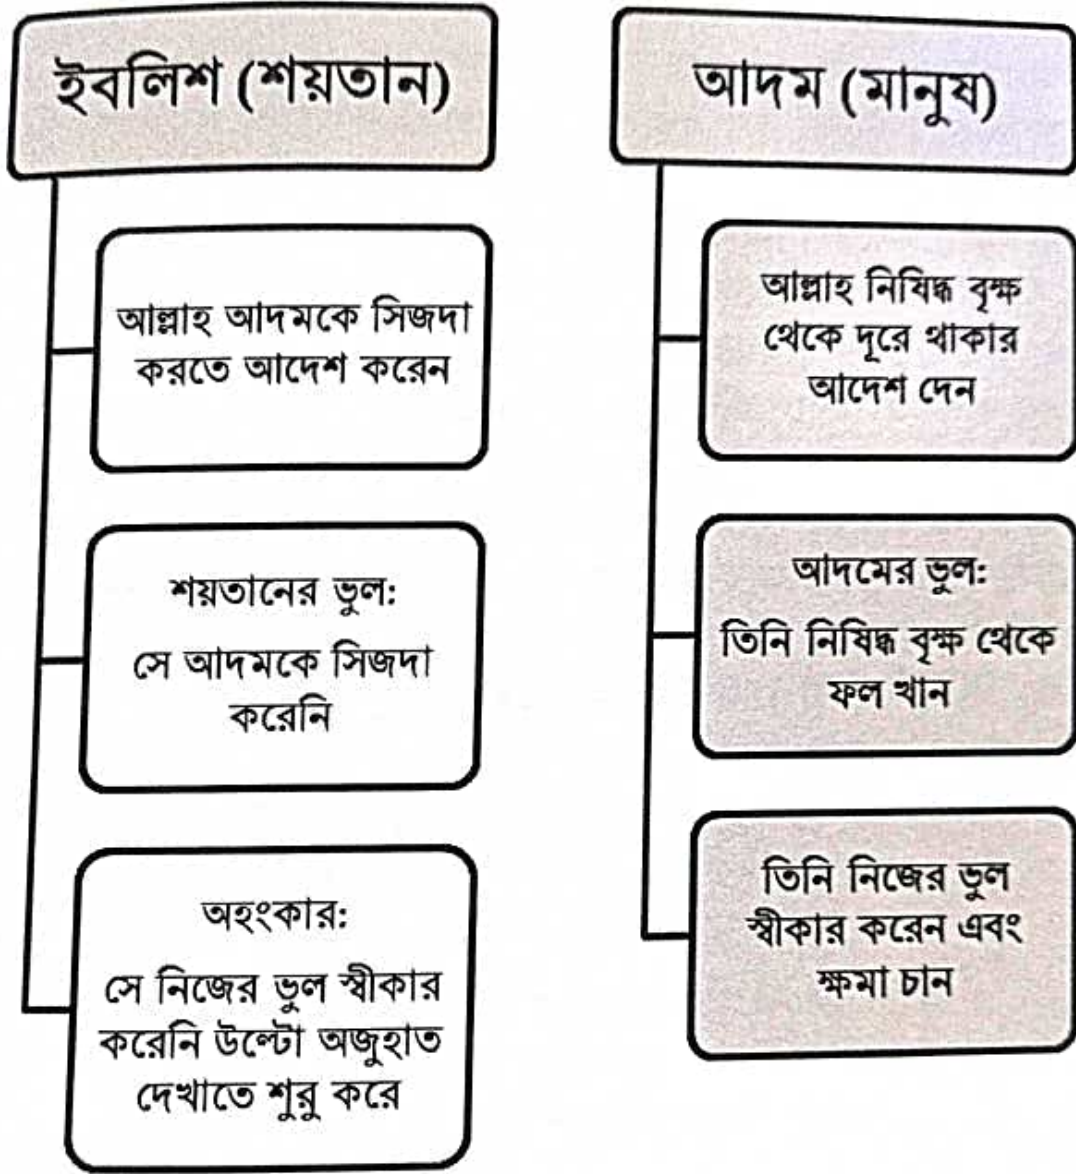 ইবলিশ (শয়তান)
আল্লাহ আদমকে সিজদা
করতে আদেশ করেন
শয়তানের ভুল:
সে আদমকে সিজদা
করেনি
অহংকার:
সে নিজের ভুল স্বীকার
করেনি উল্টো অজুহাত
দেখাতে শুরু করে
আদম (মানুষ)
আল্লাহ নিষিদ্ধ বৃক্ষ
থেকে দূরে থাকার
আদেশ দেন
আদমের ভুল:
তিনি নিষিদ্ধ বৃক্ষ থেকে
ফল খান
তিনি নিজের ভুল
স্বীকার করেন এবং
ক্ষমা চান